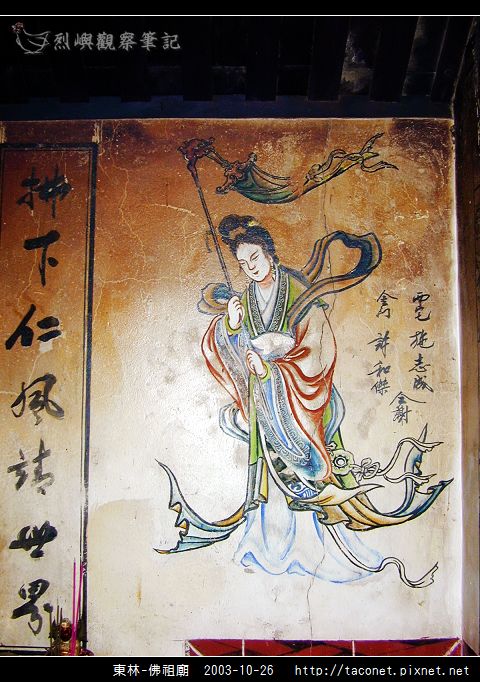 烈嶼觀察筆記
拂下仁風靖世界
電 施志成
金門 許和傑
仝謝
東林-佛祖廟 2003-10-26 http://taconet.pixnet.net